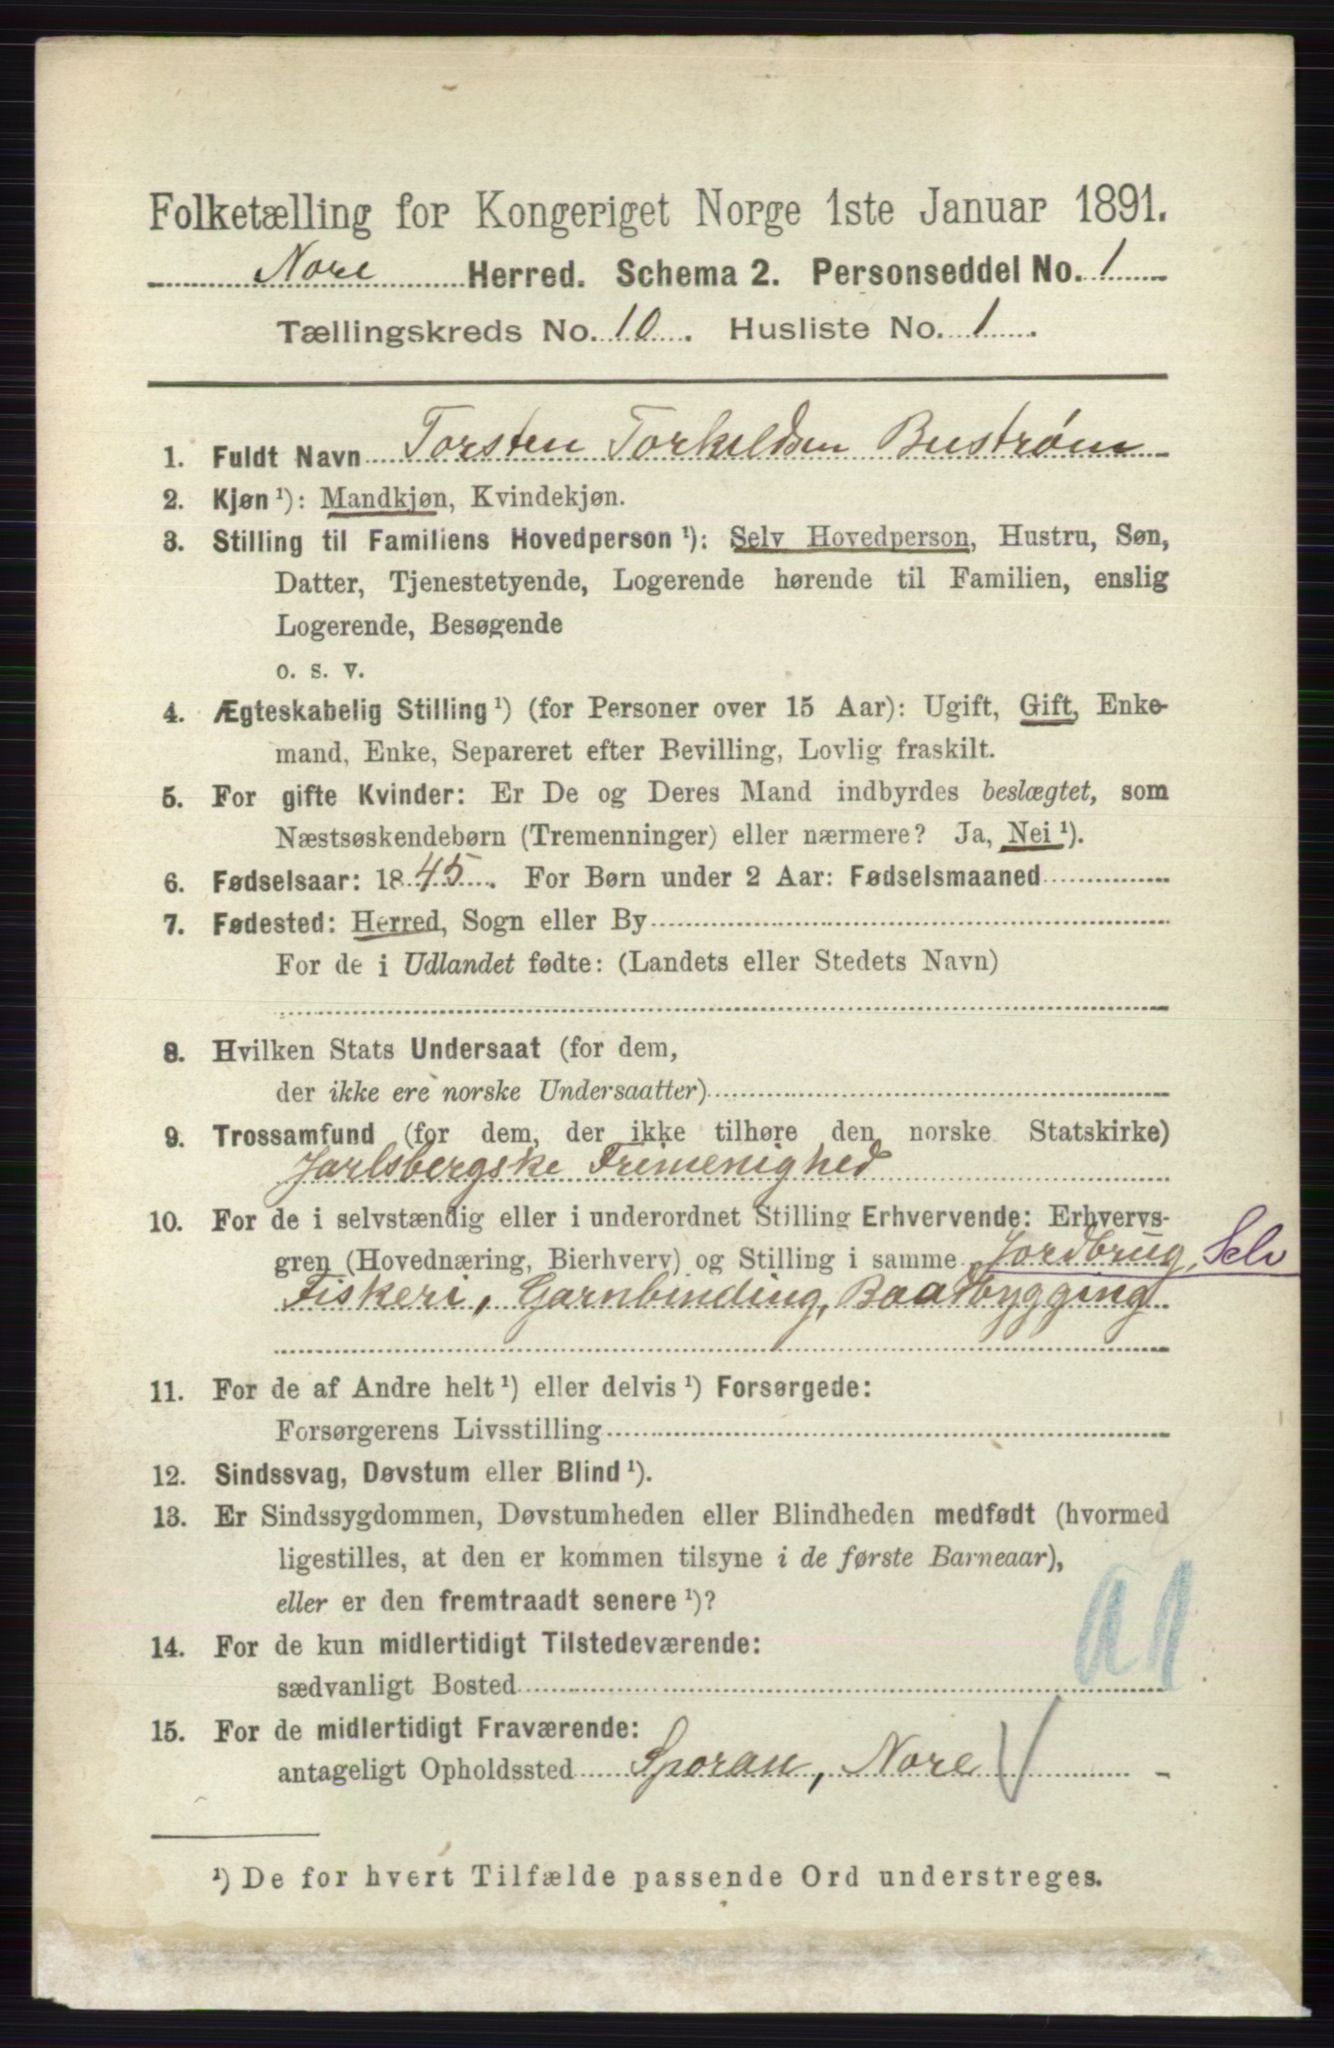 Folketælling for Kongeriget Norge 1ste Januar 1891.
Nore Herred. Schema 2. Personseddel No. 1
Tællingskreds No. 10. Husliste No. 1.
1. Fuldt Navn Torsten Torkeldsen Bustrøm
2. Kjøn ¹): Mandkjøn, Kvindekjøn.
3. Stilling til Familiens Hovedperson ¹): Selv Hovedperson, Hustru, Søn,
Datter, Tjenestetyende, Logerende hørende til Familien, enslig
Logerende, Besøgende
o. s. v.
4. Ægteskabelig Stilling ¹) (for Personer over 15 Aar): Ugift, Gift, Enke-
mand, Enke, Separeret efter Bevilling, Lovlig fraskilt.
5. For gifte Kvinder: Er De og Deres Mand indbyrdes beslægtet, som
Næstsøskendebørn (Tremenninger) eller nærmere? Ja, Nei ¹).
6. Fødselsaar: 1845. For Børn under 2 Aar: Fødselsmaaned
7. Fødested: Herred, Sogn eller By
For de i Udlandet fødte: (Landets eller Stedets Navn)
8. Hvilken Stats Undersaat (for dem,
der ikke ere norske Undersaatter)
9. Trossamfund (for dem, der ikke tilhøre den norske Statskirke)
Jarlsbergske Frimenighed
10. For de i selvstændig eller i underordnet Stilling Erhvervende: Erhvervs-
gren (Hovednæring, Bierhverv) og Stilling i samme Jordbrug, Selv
Fiskeri, Garnbinding, Baadbygging
11. For de af Andre helt ¹) eller delvis ¹) Forsørgede:
Forsørgerens Livsstilling
12. Sindssvag, Døvstum eller Blind ¹).
13. Er Sindssygdommen, Døvstumheden eller Blindheden medfødt (hvormed
ligestilles, at den er kommen tilsyne i de første Barneaar),
eller er den fremtraadt senere ¹)?
14. For de kun midlertidigt Tilstedeværende:
sædvanligt Bosted
15. For de midlertidigt Fraværende:
antageligt Opholdssted Sporan, Nore
¹) De for hvert Tilfælde passende Ord understreges.